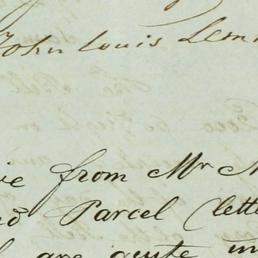 John Louis Lem
ie from Mr M
nd Parcel (lette
are quite un